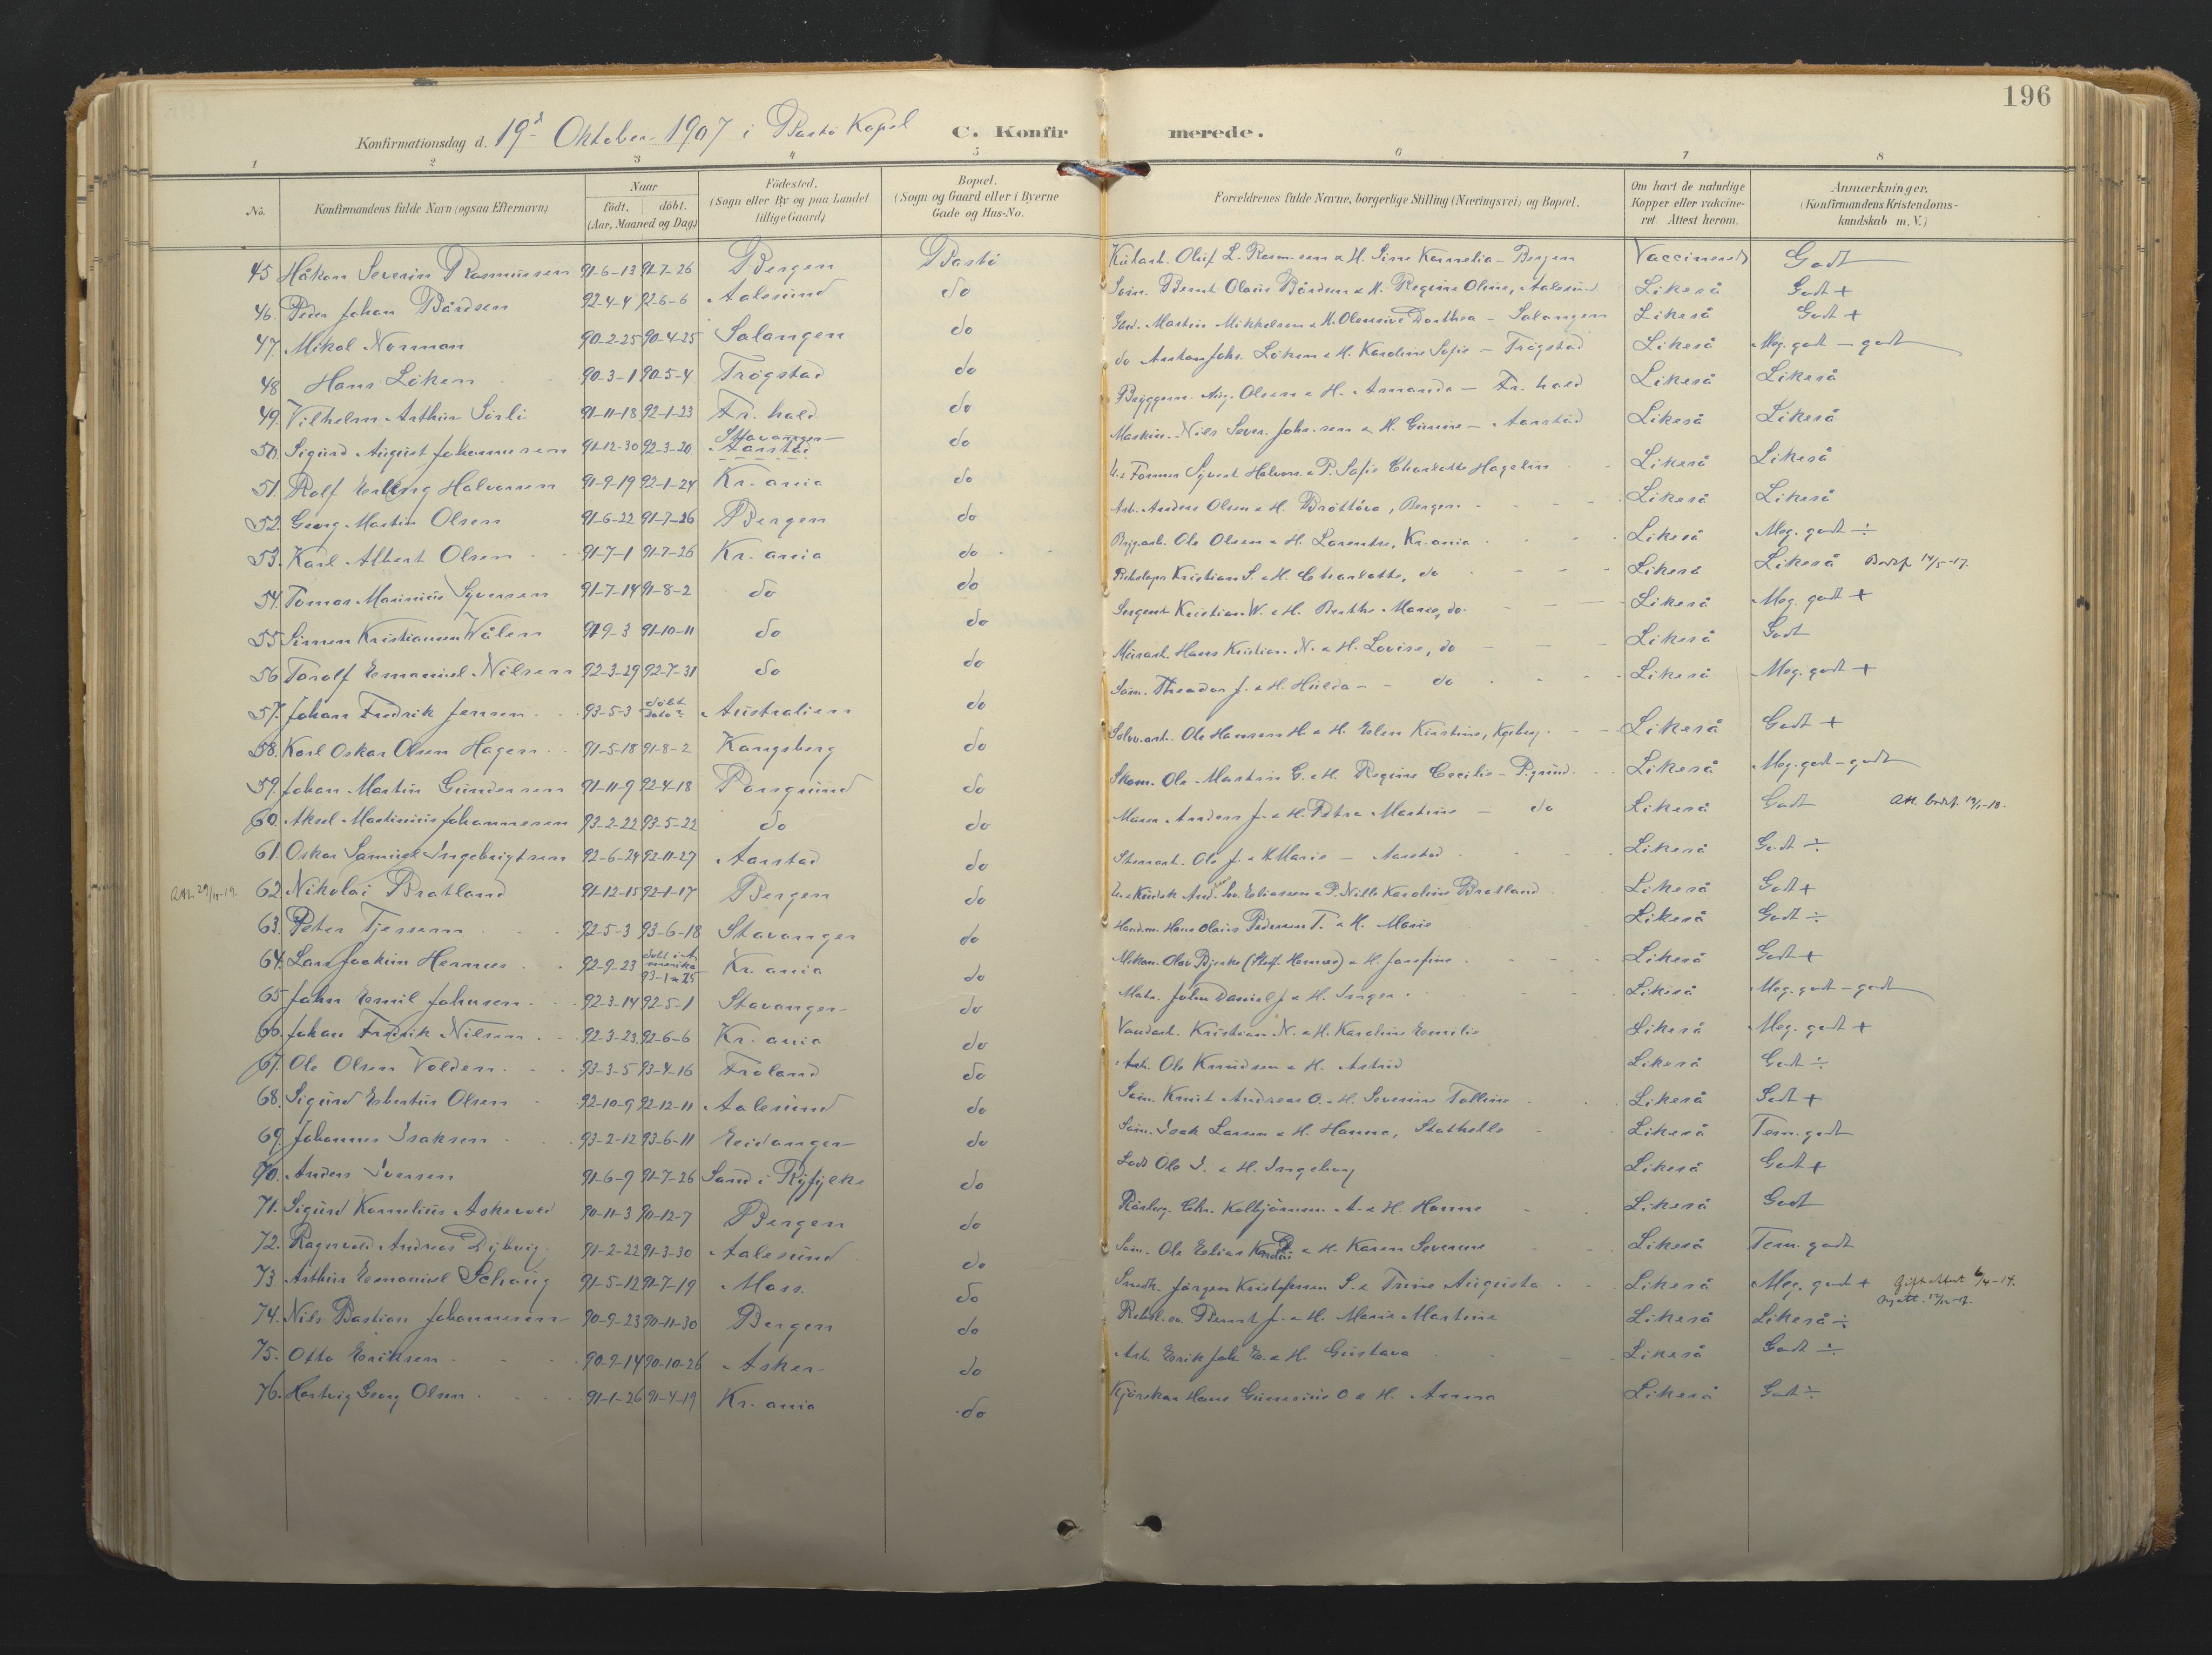 196
Konfirmationsdag d. 19d Oktober 1907 i Bastö Kapel C. Konfirmerede.
1 2 3 4 5 6 7 8
No. Konfirmandens fulde Navn (ogsaa Efternavn) Naar födt, döbt. (Aar, Maaned og Dag) Födested. (Sogn eller By og paa Landet tillige Gaard) Bopæl. (Sogn og Gaard eller i Byerne Gade og Hus-No. Forældrenes fulde Navne, borgerlige Stilling (Næringsvei) og Bopæl. Om havt de naturlige Kopper eller vakcineret. Attest herom. Anmærkninger. (Konfirmandens Kristendomskundskab m. V.)
45 Håkon Severin Rasmussen 91-6-13 91-7-26 Bergen Bastö Oluf L. Rasmussen & H. Sine Kornelia - Bergen Vaccinerede Godt
46. Peder Johan Bårdsen 92-4-4 92-6-6 Aalesund do Bernt Olaus Bårdsen & H. Regine Oline, Aalesund Likeså Godt +
47. Mikal Norman 90-2-25 90-4-25 Salangen do Martin Mikkelsen & H. Dorthea - Salangen Likeså Godt +
48 Hans Löken 90-3-1 90-5-4 Trögstad do do Anton Johs. Löken & H. Karoline Sofie - Trögstad Likeså Meg. godt - godt
49. Vilhelm Arthur Sörli 91-11-18 92-1-23 Fr. hald do Aug. Olsen & H. Amanda - Fr. hald Likeså Likeså
50. Sigurd August Johannesen 91-12-30 92-3-20 Stavanger Aarstad do Maskin. Nils Sever. Johs.sen & H. Gunine - Aarstad Likeså Likeså
51. Rolf Erling Halvorsen 91-9-19 92-1-24 Kr. ania do Sofie Charlotte Hagelin Likeså Likeså
52. Georg Martin Olsen 91-6-22 91-7-26 Bergen do Arb. Anders Olsen & H. Bröttöra, Bergen Likeså Likeså
53. Karl Albert Olsen 91-7-1 91-7-26 Kr. ania do Brygarb. Ole Olsen & H. Lorentse, Kr. ania Likeså Meg. godt ÷
54. Tomas Marinius Syversen 91-7-14 91-8-2 do do Kristian S. & H. Charlotte, do Likeså Likeså 14/5-17.
55 Simen Kristiansen Wålen 91 9-3 91-10-11 do do Sergent Kristian W. & H. Berthe Marie, do. Likeså Meg. godt +
56 Torolf Emanuel Nilsen 92-3-29 92-7-31 do do Murarb. Hans Kristian N. & H. Lovise, do Likeså Godt
57. Johan Fredrik Jensen 93-5-3 döbt Dato? Australien do Söm. Theodor J. & H. Hulda - do Likeså Meg. godt +
58. Karl Oskar Olsen Hagen 91-5-18 91-8-2 Kongsberg do Sölvv.arb. Ole Hansen H. & H. Elen Kirstine, Kgsberg. Likeså Godt +
59. Johan Martin Gundersen 91-11-9 92-4-18 Porsgrund do Skom. Ole Martin G. & H. Regine Cecilie - P.grund. Likeså Meg. godt - godt
60. Aksel Martinius Johannesen 93-2-22 93-5-22 do do Murer Anders J. & H. Petra Martine - do Likeså Godt
61. Oskar Samuel Ingebrigtsen 92-6-24 92-11-27 Aarstad do Stenarb. Ole J. & H. Marie - Aarstad Likeså Godt ÷
62. Nikolai Bratland 91-12-15 92-1-17 Bergen do Eliassen & P. Nille Karoline Bratland Likeså Godt +
63. Peter Tjersem 92-5-3 93-6-18 Stavanger do Handm. Hans Olaus Pedersen T. & H. Marie Likeså Godt ÷
64. Lars Joakim Hermes 92-9-23 döbt i Amerika 93-1-25 Kr. ania do Mekan. Olav Bjerke & H. Josefine Likeså Godt +
65 John Emil Johnsen 92-3-14 92-5-1 Stavanger do Matr. John Daniel J & H. Inger Likeså Meg. godt - godt
66. Johan Fredrik Nilsen 92-3-23 92-6-6 Kr. ania do Kristian N. & H. Karoline Emilie Likeså Meg. godt +
67. Ole Olsen Volden 93-3-5 93-4-16 Froland do Arb. Ole Knudsen & H. Astrid Likeså Godt ÷
68. Sigurd Esbertus Olsen 92-10-9 92-12-11 Aalesund do Söm. Knut Andreas O. & H. Severine Talline Likeså Godt +
69. Johannes Isaksen 93-2-12 93-6-11 Eidanger do Söm. Isak Larsen & H. Hanna, Stathelle Likeså Tem. godt
70. Anders Iversen 91-6-9 91-7-26 Sand i Ryfylke do Ole I. & H. Ingeborg Likeså Godt +
71. Sigurd Kornelius Askevold 90-11-3 90-12-7 Bergen do Kolbjörnsen A. & H. Hanne Likeså Godt
72. Ragnvald Andreas Dybvig 91-2-22 91-3-30 Aalesund do Söm. Ole Elias & H. Karen Severine Likeså Tem. godt
73. Arthur Emanuel Schaug 91-5-12 91-7-19 Moss. do Smedk. Jörgen Kristofersen S. & Trine Augusta Likeså Meg. godt +
74. Nils Bastian Johannesen 90-9-23 90-11-30 Bergen do Bernt J. & H. Marie Martine Likeså Likeså ÷
75. Otto Eriksen 90-9-14 90-10-26 Asker do Arb. Erik Joh. E. & H. Gustava Likeså Godt ÷
76. Hartvig Georg Olsen 91-1-26 91-4-19 Kr. ania do Kjörekar Hans Gunerius O & H. Anna Likeså Godt ÷